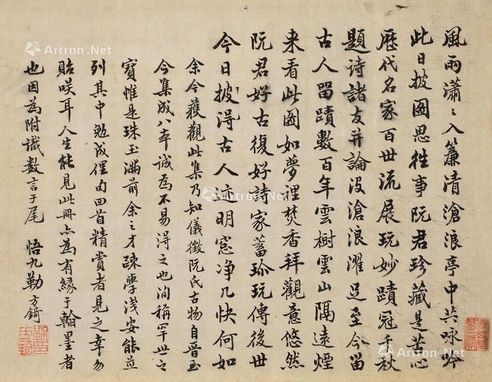 風雨瀟〻入簾清滄浪亭中共咏
此日披圖思往事阮君珍藏是苦心
歷代名家百世流展玩妙蹟冠千秋
題詩諸友并論沒滄浪濯足至今留
古人留蹟數百年雲樹雲山隔遠煙
来看此圖如夢裡焚香拜觀意悠然
阮君好古復好詩家蓄珍玩傳後世
今日披得古人迹明窓净几快何如
余今獲觀此集乃知儀徵阮氏古物自晋至
今集成八卷誠為不易得之也洵稱罕世之
寳惟是珠玉滿前余之才疎學淺安能並
列其中勉成俚句四首精賞者見之幸勿
貽咲耳人生能見此冊亦為有緣于翰墨者
也因為附識數言于尾 悟九勒方錡
Artron.Net
Artron.Net
Artron.Net
Artron.Net